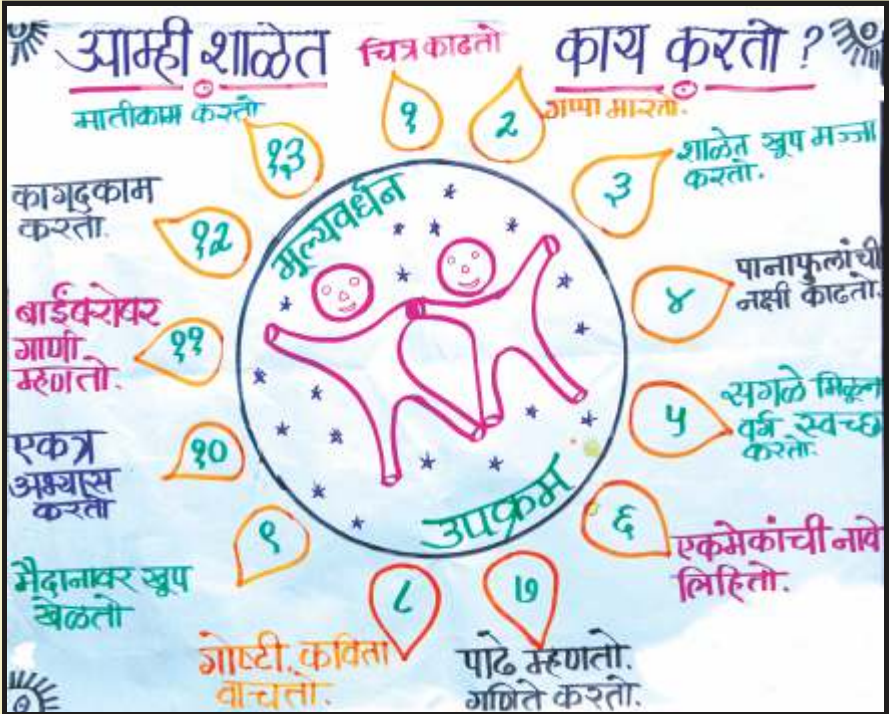 आम्ही शाळेत काय करतो ?
चित्र काढतो
१
२
गप्पा मारतो.
३
शाळेत खूप मज्जा
करतो.
४
पानाफुलांची
नक्षी काढतो.
५
सगळे मिळून
वर्ग स्वच्छ
करतो.
६
एकमेकांची नावे
लिहितो.
७
पाढे म्हणतो.
गणिते करतो.
८
गोष्टी, कविता
वाचतो.
९
मैदानावर खूप
खेळतो
१०
एकत्र
अभ्यास
करतो
११
बाईंबरोबर
गाणी
म्हणतो.
१२
कागदकाम
करतो.
१३
मातीकाम करतो
मूल्यवर्धन
उपक्रम